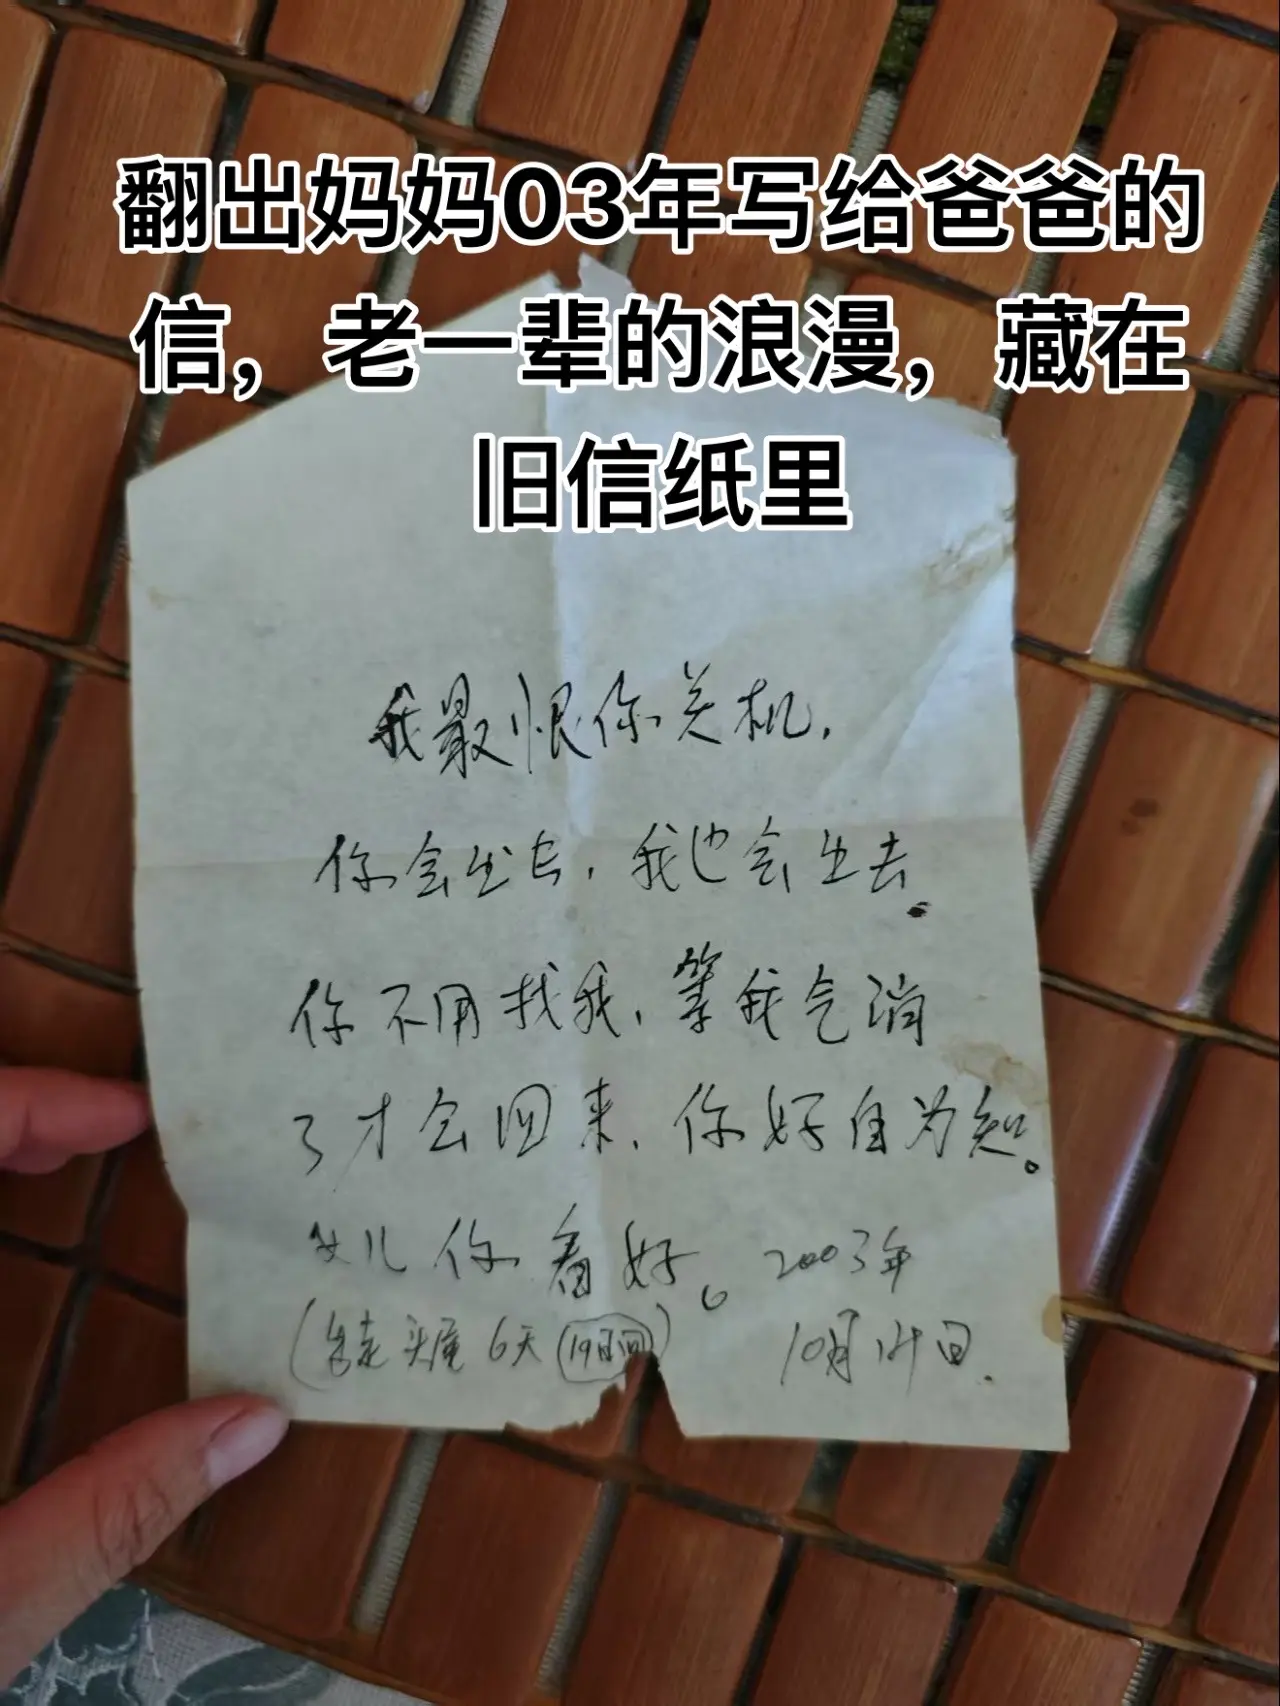 翻出妈妈03年写给爸爸的
信，老一辈的浪漫，藏在
旧信纸里
我最恨你关机，
你会出去，我也会出去。
你不用找我，等我气消
了才会回来，你好自为知。
女儿你看好。2003年
（出走头尾6天（19日回））
10月14日.